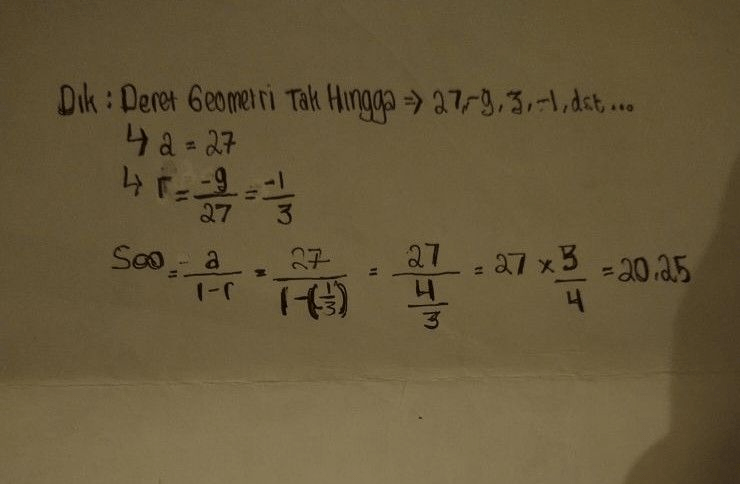 Dik : Deret Geometri Tak Hingga ⇒ 27, -9, 3, -1, dst...
↳ a = 27
↳ r = -9/27 = -1/3
S∞ = a/1-r = 27/1-(-1/3) = 27/4/3 = 27 × 3/4 = 20.25